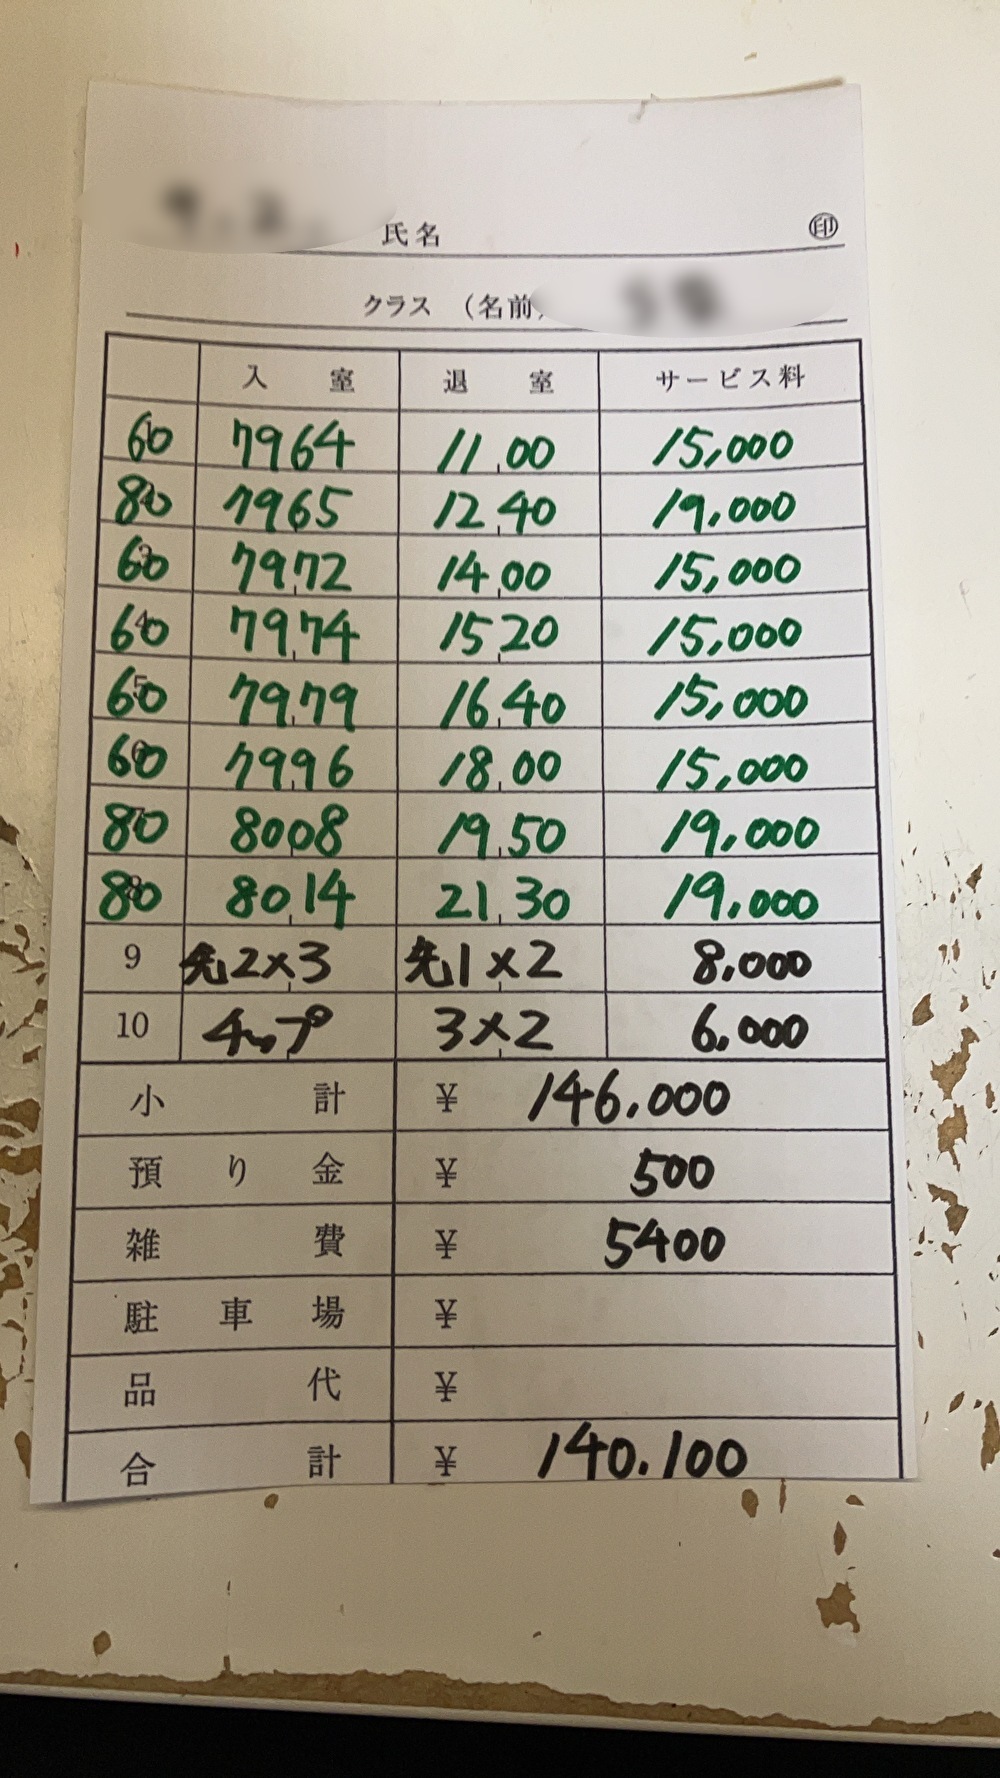 氏名 ㊞
クラス (名前)
入室 退室 サービス料
60 7964 11,00 15,000
80 7965 12,40 19,000
60 7972 14,00 15,000
60 7974 15,20 15,000
60 7979 16,40 15,000
60 7996 18,00 15,000
80 8008 19,50 19,000
80 8014 21,30 19,000
9 先2×3 先1×2 8,000
10 チップ 3×2 6,000
小計 ¥ 146,000
預り金 ¥ 500
雑費 ¥ 5400
駐車場 ¥
品代 ¥
合計 ¥ 140.100